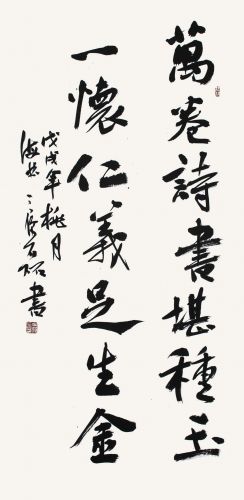 萬卷詩書堪種玉
一懷仁義足生金
戊戌年桃月
書